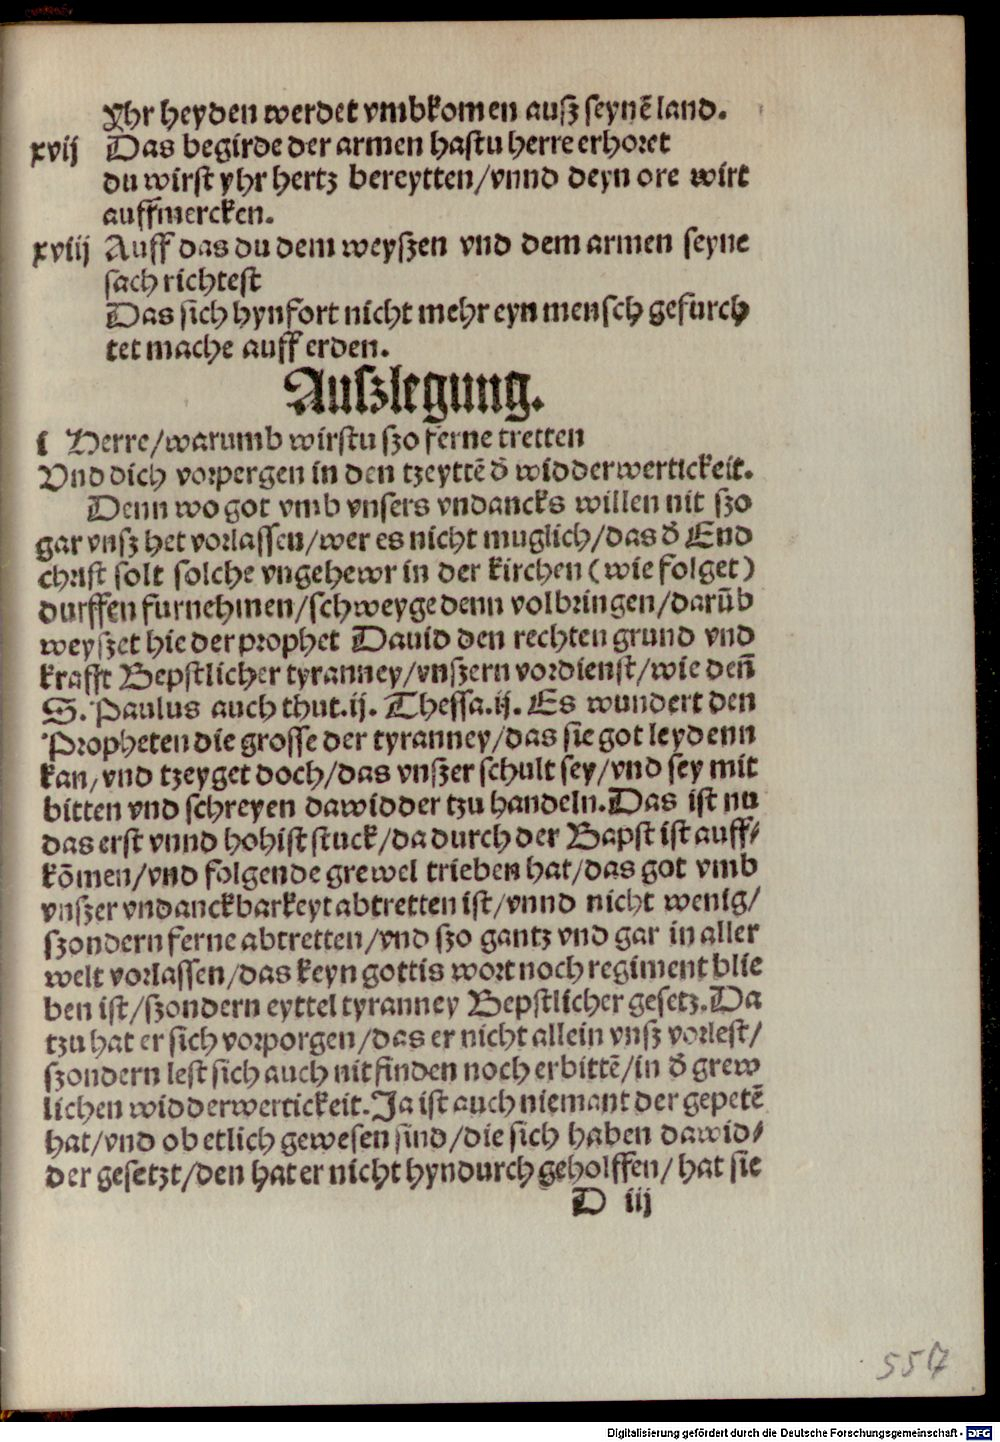 Yhr heyden werdet vmbkomen ausz seynẽ land.
xvij Das begirde der armen hastu herre erhoret
du wirst yhr hertz bereytten/vnnd deyn ore wirt
auffmercken.
xviij Auff das du dem weyszen vnd dem armen seyne
sach richtest
Das sich hynfort nicht mehr eyn mensch gefurch
tet mache auff erden.
Auszlegung.
i Herre/warumb wirstu szo ferne tretten
Vnd dich vorpergen in den tzeyttẽ d̕ widderwertickeit.
Denn wo got vmb vnsers vndancks willen nit szo
gar vnsz het vorlassen/wer es nicht muglich/das d̕ End
christ solt solche vngehewr in der kirchen (wie folget)
durffen furnehmen/schweyge denn volbringen/darũb
weyszet hie der prophet Dauid den rechten grund vnd
krafft Bepstlicher tyranney/vnszern vordienst/wie den̄
S. Paulus auch thut.ij. Thessa.ij. Es wundert den
Propheten die grosse der tyranney/das sie got leydenn
kan/vnd tzeyget doch/das vnszer schult sey/vnd sey mit
bitten vnd schreyen dawidder tzu handeln. Das ist nu
das erst vnnd hohist stuck/da durch der Bapst ist auff⸗
kõmen/vnd folgende grewel trieben hat/das got vmb
vnszer vndanckbarkeyt abtretten ist/vnnd nicht wenig/
szondern ferne abtretten/vnd szo gantz vnd gar in aller
welt vorlassen/das keyn gottis wort noch regiment blie
ben ist/szondern eyttel tyranney Bepstlicher gesetz. Da
tzu hat er sich vorporgen/das er nicht allein vnsz vorlest/
szondern lest sich auch nit finden noch erbittẽ/in d̕ grew
lichen widderwertickeit. Ja ist auch niemant der gepetẽ
hat/vnd ob etlich gewesen sind/die sich haben dawid⸗
der gesetzt/den hat er nicht hyndurch geholffen/hat sie
D iij
557
Digitalisierung gefördert durch die Deutsche Forschungsgemeinschaft - DFG